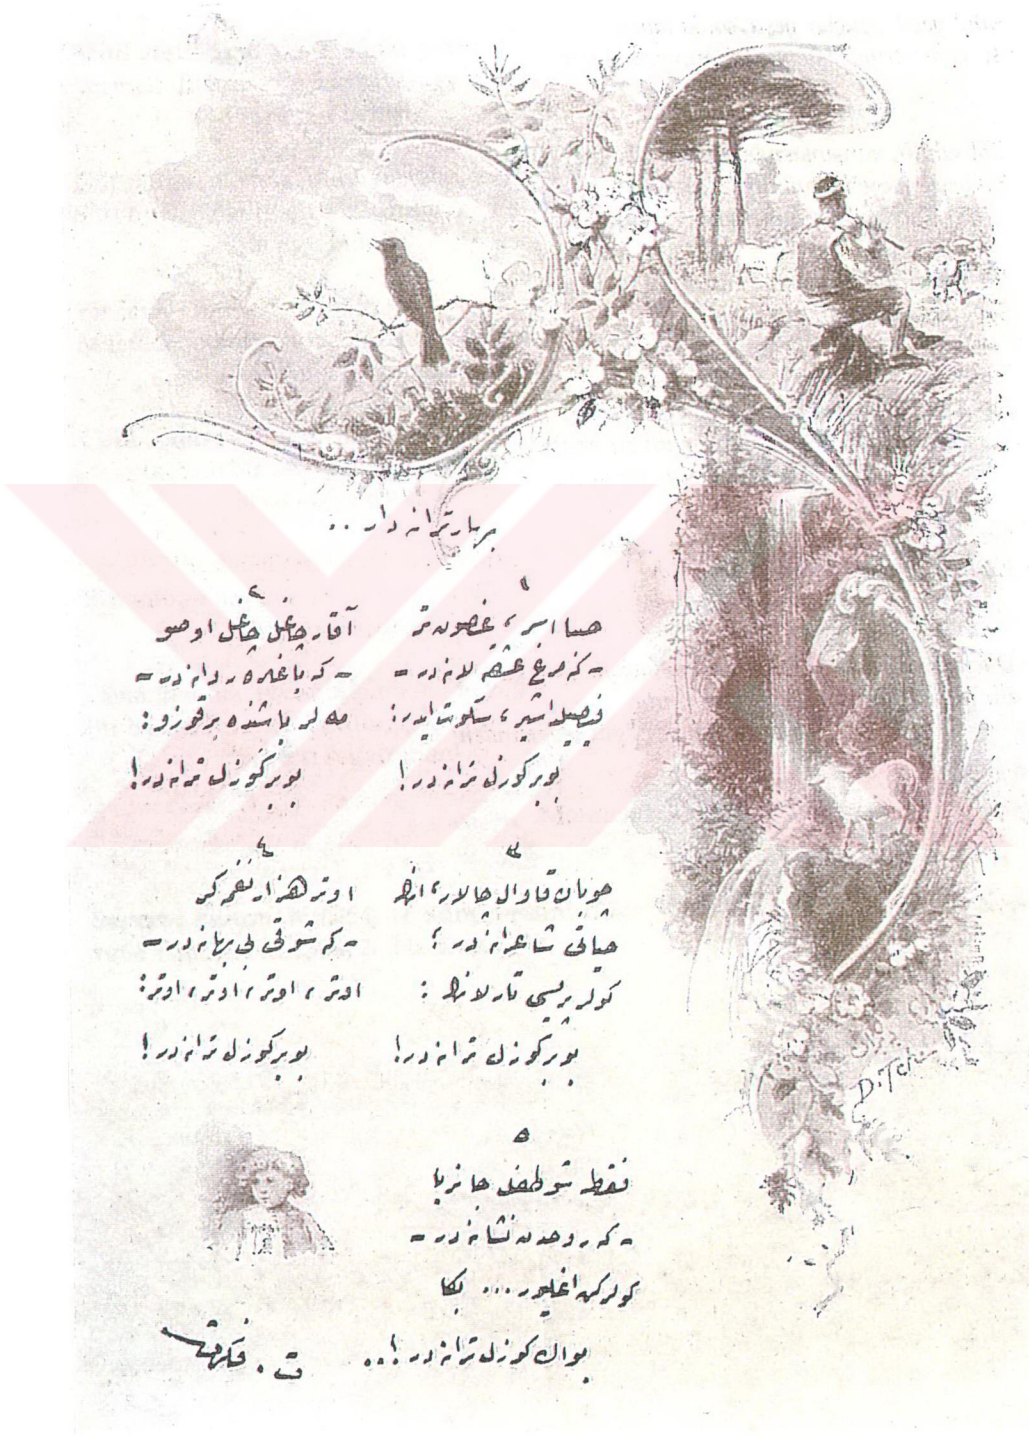 بهار ترانه دار ..
١
صبا اسر، غصون تر
- كه مرغ عشقه لانه در -
فیصیلداشیر، سكوت ایدر:
بو بر كوزل ترانه در!
٢
آقار چاغل چاغل او صو
- كه باغلره روانه در -
مه لر باشنده بر قوزو:
بو بر كوزل ترانه در!
٣
چوبان قاوال چالار، انك
حیاتی شاعرانه در؛
كولر پریسی تارلانك:
بو بر كوزل ترانه در!
٤
اوتر هزار نغمه كر
- كه شوقی بی بهانه در -
اوتر، اوتر، اوتر، اوتر:
بو بر كوزل ترانه در!
٥
فقط شو طفل جانربا
- كه روحدن نشانه در -
كولركن اغلیور... بكا
بو اك كوزل ترانه در!..
ت. فكرت